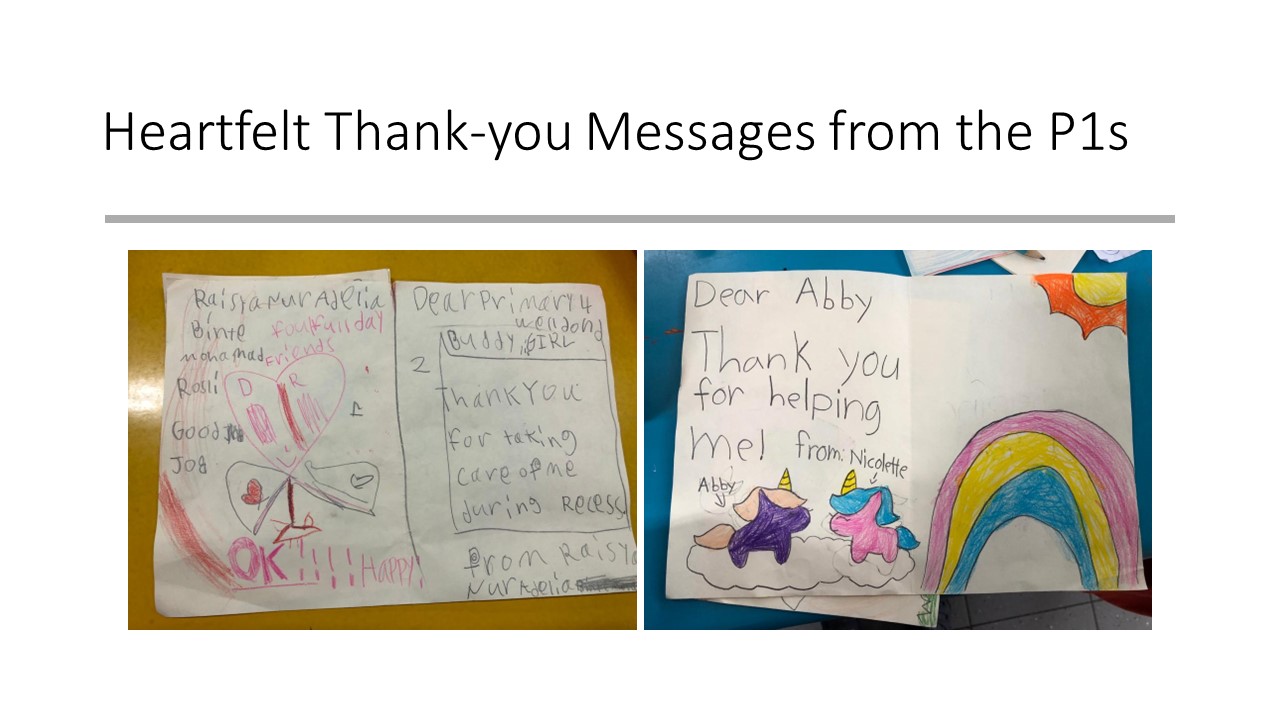 Heartfelt Thank-you Messages from the P1s
Raisya Nur Adelia
Binte
mohamad
Rosli
Good
JOB
Friends
D R
1
OK!!!! Happy!
Dear Primary 4
Buddy, GIRL
2
Thank You
for taking
care of me
during Recess
From Raisya
Nur Adelia
Dear Abby
Thank you
for helping
me! from: Nicolette
Abby